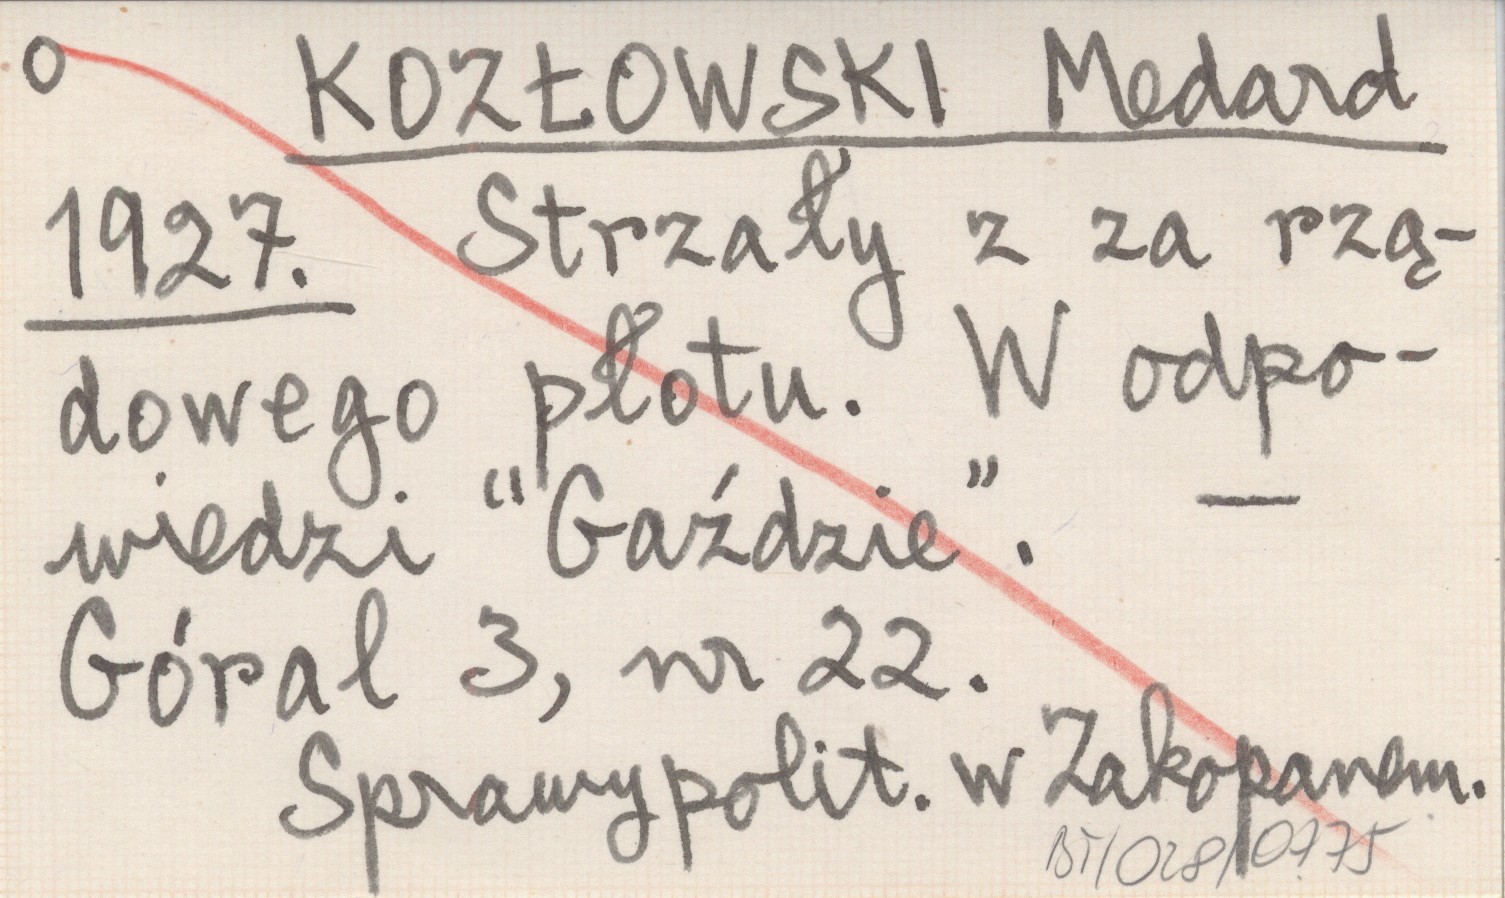 O KOZŁOWSKI Medard
1927. Strzały z za rzą-
dowego płotu. W odpo-
wiedzi "Gaździe". —
Góral 3, nr 22.
Sprawy polit. w Zakopanem.
BT/028/0775